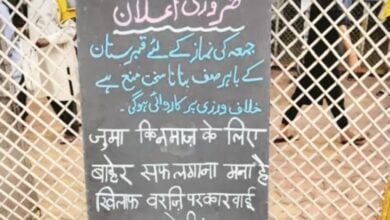 ضروری اعلان
جمعہ کی نماز کے لئے قبرستان
کے باہر صف بنانا سخت منع ہے
خلاف ورزی پر کاروائی ہوگی۔
जुमा कि नमाज़ के लिए
बाहेर सफ लगाना मना है
खिलाफ वरज़ि पर कारवाई